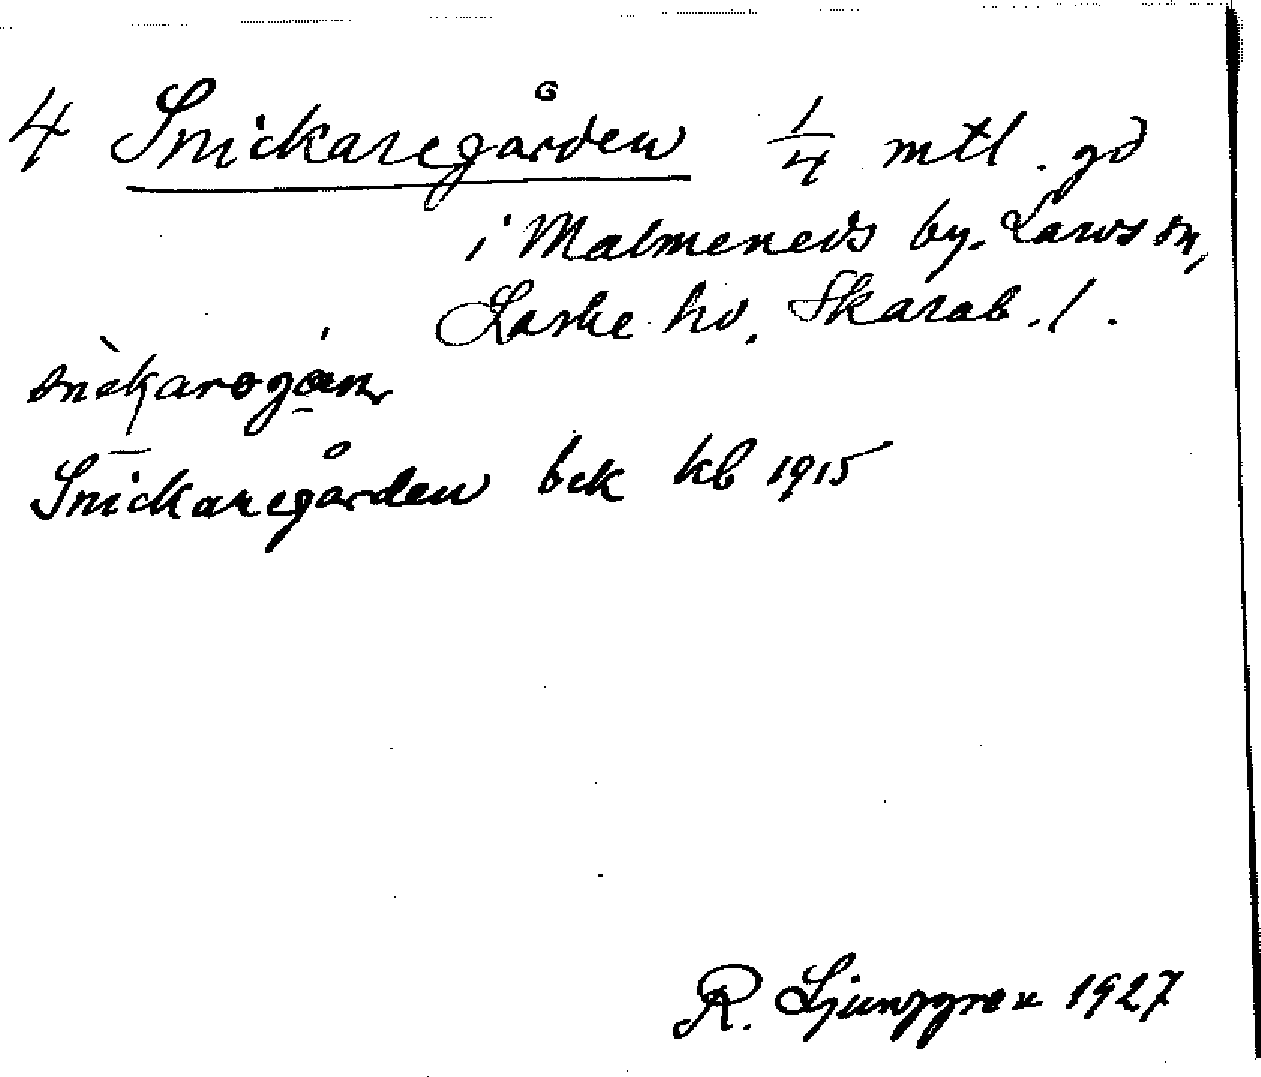 4 Snickaregården 1/4 mtl. gd
i Malmeneds by. Larvs sn,
Laske hd. Skarab. l.
Snickaregården bek kb 1915
R. Ljunggren 1927